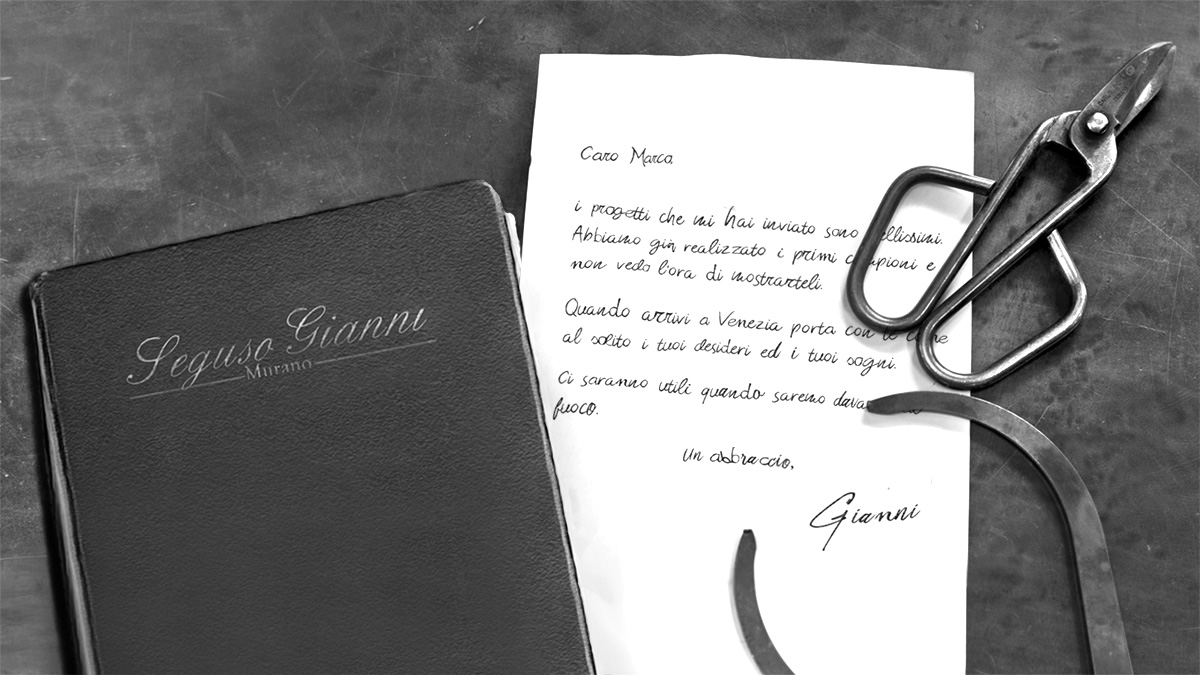 Seguso Gianni
Murano
Caro Marca
i progetti che mi hai inviato sono
Abbiamo già realizzato i primi e
non vedo l'ora di mostrarteli.
Quando arrivi a Venezia porta con te
al solito i tuoi desideri ed i tuoi sogni.
Ci saranno utili quando saremo
fuoco.
un abbraccio,
Gianni